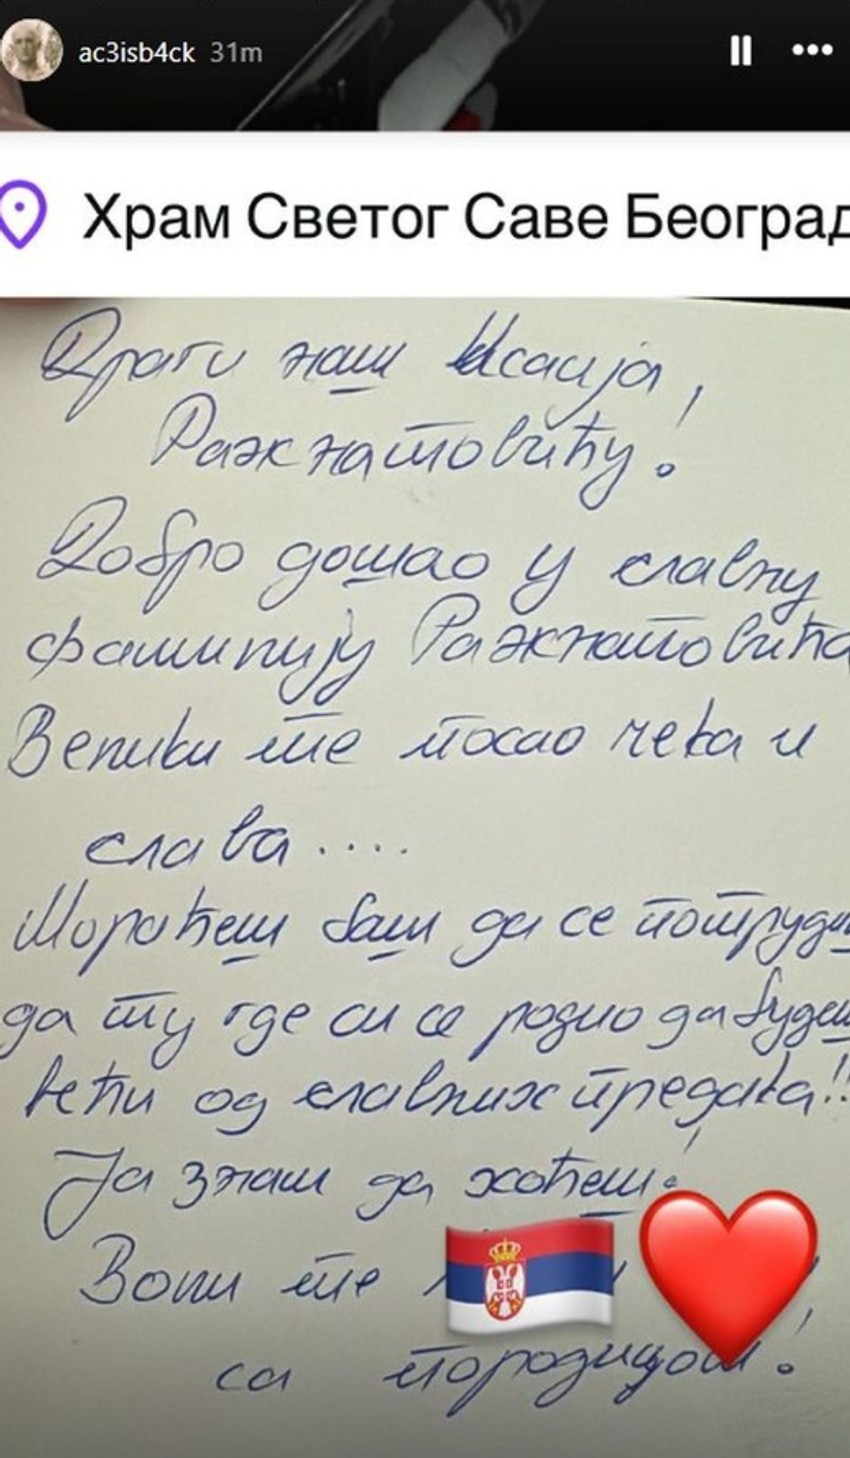 ac3isb4ck 31m
Храм Светог Саве Београд
Драги наш Исаија,
Ражнатовићу!
Добро дошао у славну
фамилију Ражнатовића
Велики те посао чека и
слава....
Мораћеш баш да се потрудиш
да ту где си се родио да будеш
већи од славних предака!!
Ја знам да хоћеш!
Воли те
са породицом!